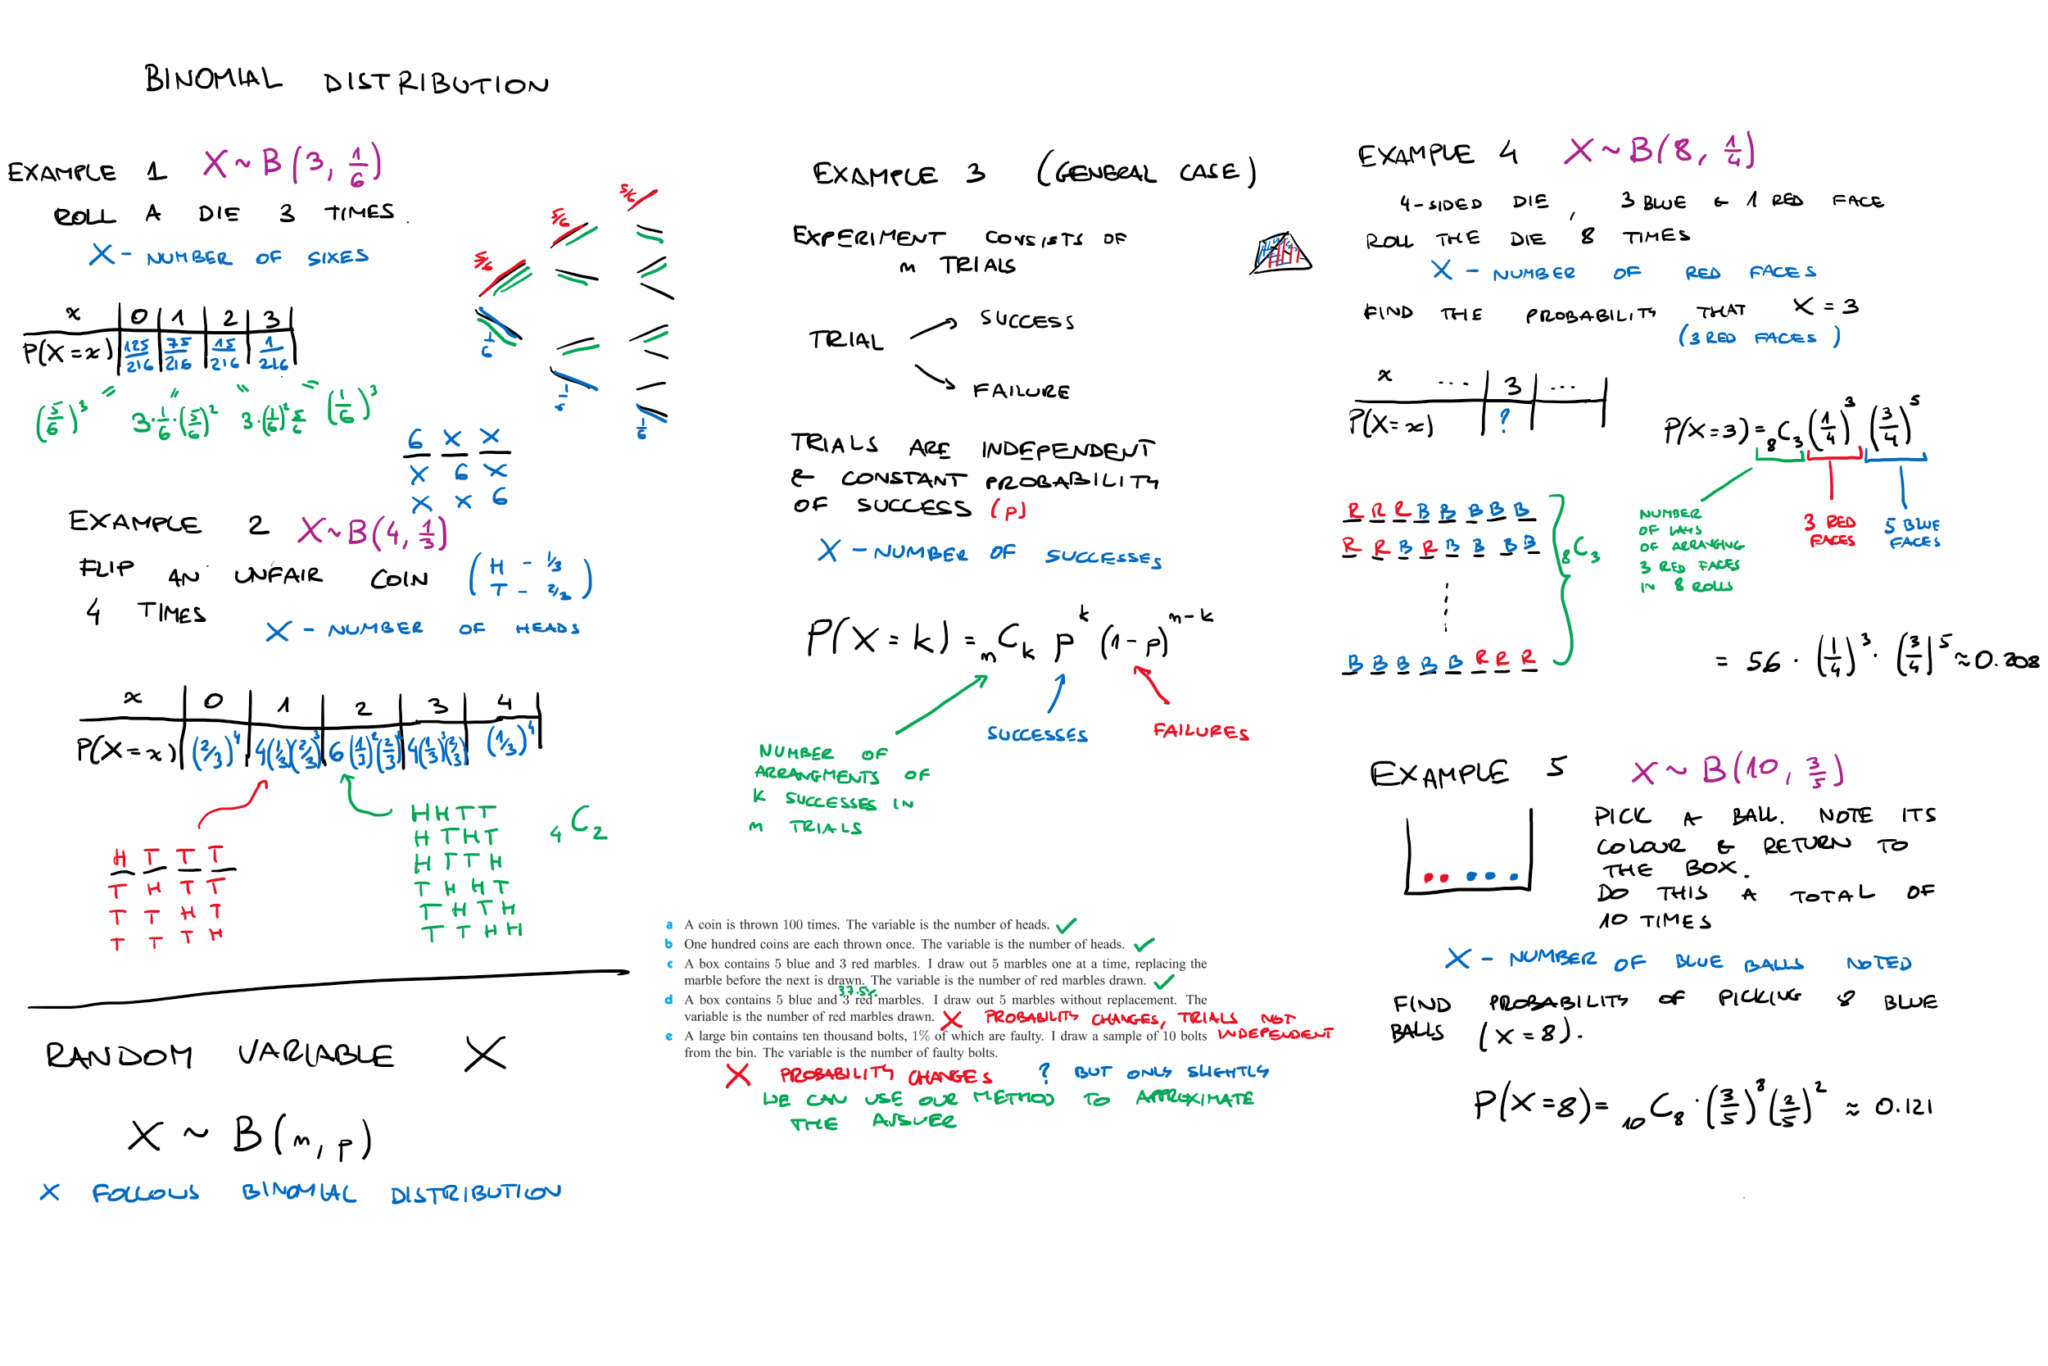 BINOMIAL DISTRIBUTION
EXAMPLE 1 X ~ B(3, 1/6)
ROLL A DIE 3 TIMES.
X - NUMBER OF SIXES
x | 0 | 1 | 2 | 3
P(X=x) | 125/216 | 75/216 | 15/216 | 1/216
= = = =
(5/6)³ 3·1/6·(5/6)² 3·(1/6)²·5/6 (1/6)³
5/6 5/6 5/6
1/6 1/6 1/6
6 X X
X 6 X
X X 6
EXAMPLE 2 X~B(4, 1/3)
FLIP AN UNFAIR COIN (H - 1/3
T - 2/3)
4 TIMES
X - NUMBER OF HEADS
x | 0 | 1 | 2 | 3 | 4
P(X=x) | (2/3)⁴ | 4(1/3)(2/3)³ | 6(1/3)²(2/3)² | 4(1/3)³(2/3) | (1/3)⁴
H T T T
T H T T
T T H T
T T T H
HHTT
HTHT
HTTH
THHT
THTH
TTHH
₄C₂
RANDOM VARIABLE X
X ~ B(n, p)
X FOLLOWS BINOMIAL DISTRIBUTION
EXAMPLE 3 (GENERAL CASE)
EXPERIMENT CONSISTS OF
n TRIALS
TRIAL
SUCCESS
FAILURE
TRIALS ARE INDEPENDENT
& CONSTANT PROBABILITY
OF SUCCESS (p)
X - NUMBER OF SUCCESSES
P(X = k) = ₙCₖ pᵏ (1-p)ⁿ⁻ᵏ
SUCCESSES
FAILURES
NUMBER OF
ARRANGMENTS OF
k SUCCESSES IN
n TRIALS
a A coin is thrown 100 times. The variable is the number of heads. ✓
b One hundred coins are each thrown once. The variable is the number of heads. ✓
c A box contains 5 blue and 3 red marbles. I draw out 5 marbles one at a time, replacing the
marble before the next is drawn. The variable is the number of red marbles drawn. ✓
37.5%
d A box contains 5 blue and 3 red marbles. I draw out 5 marbles without replacement. The
variable is the number of red marbles drawn. X PROBABILITY CHANGES, TRIALS NOT
INDEPENDENT
e A large bin contains ten thousand bolts, 1% of which are faulty. I draw a sample of 10 bolts
from the bin. The variable is the number of faulty bolts.
X PROBABILITY CHANGES ? BUT ONLY SLIGHTLY
WE CAN USE OUR METHOD TO APPROXIMATE
THE ANSWER
EXAMPLE 4 X~B(8, 1/4)
4-SIDED DIE, 3 BLUE & 1 RED FACE
ROLL THE DIE 8 TIMES
X - NUMBER OF RED FACES
FIND THE PROBABILITY THAT X = 3
(3 RED FACES)
x | ... | 3 | ...
P(X=x) | ?
P(X=3) = ₈C₃ (1/4)³ (3/4)⁵
NUMBER
OF WAYS
OF ARRANGING
3 RED FACES
IN 8 ROLLS
3 RED
FACES
5 BLUE
FACES
R R R B B B B B
R R B R B B B B
B B B B B R R R
₈C₃
= 56 · (1/4)³ · (3/4)⁵ ≈ 0.208
EXAMPLE 5 X ~ B(10, 3/5)
PICK A BALL. NOTE ITS
COLOUR & RETURN TO
THE BOX.
DO THIS A TOTAL OF
10 TIMES
X - NUMBER OF BLUE BALLS NOTED
FIND PROBABILITY OF PICKING 8 BLUE
BALLS (X = 8).
P(X=8) = ₁₀C₈ · (3/5)⁸ (2/5)² ≈ 0.121